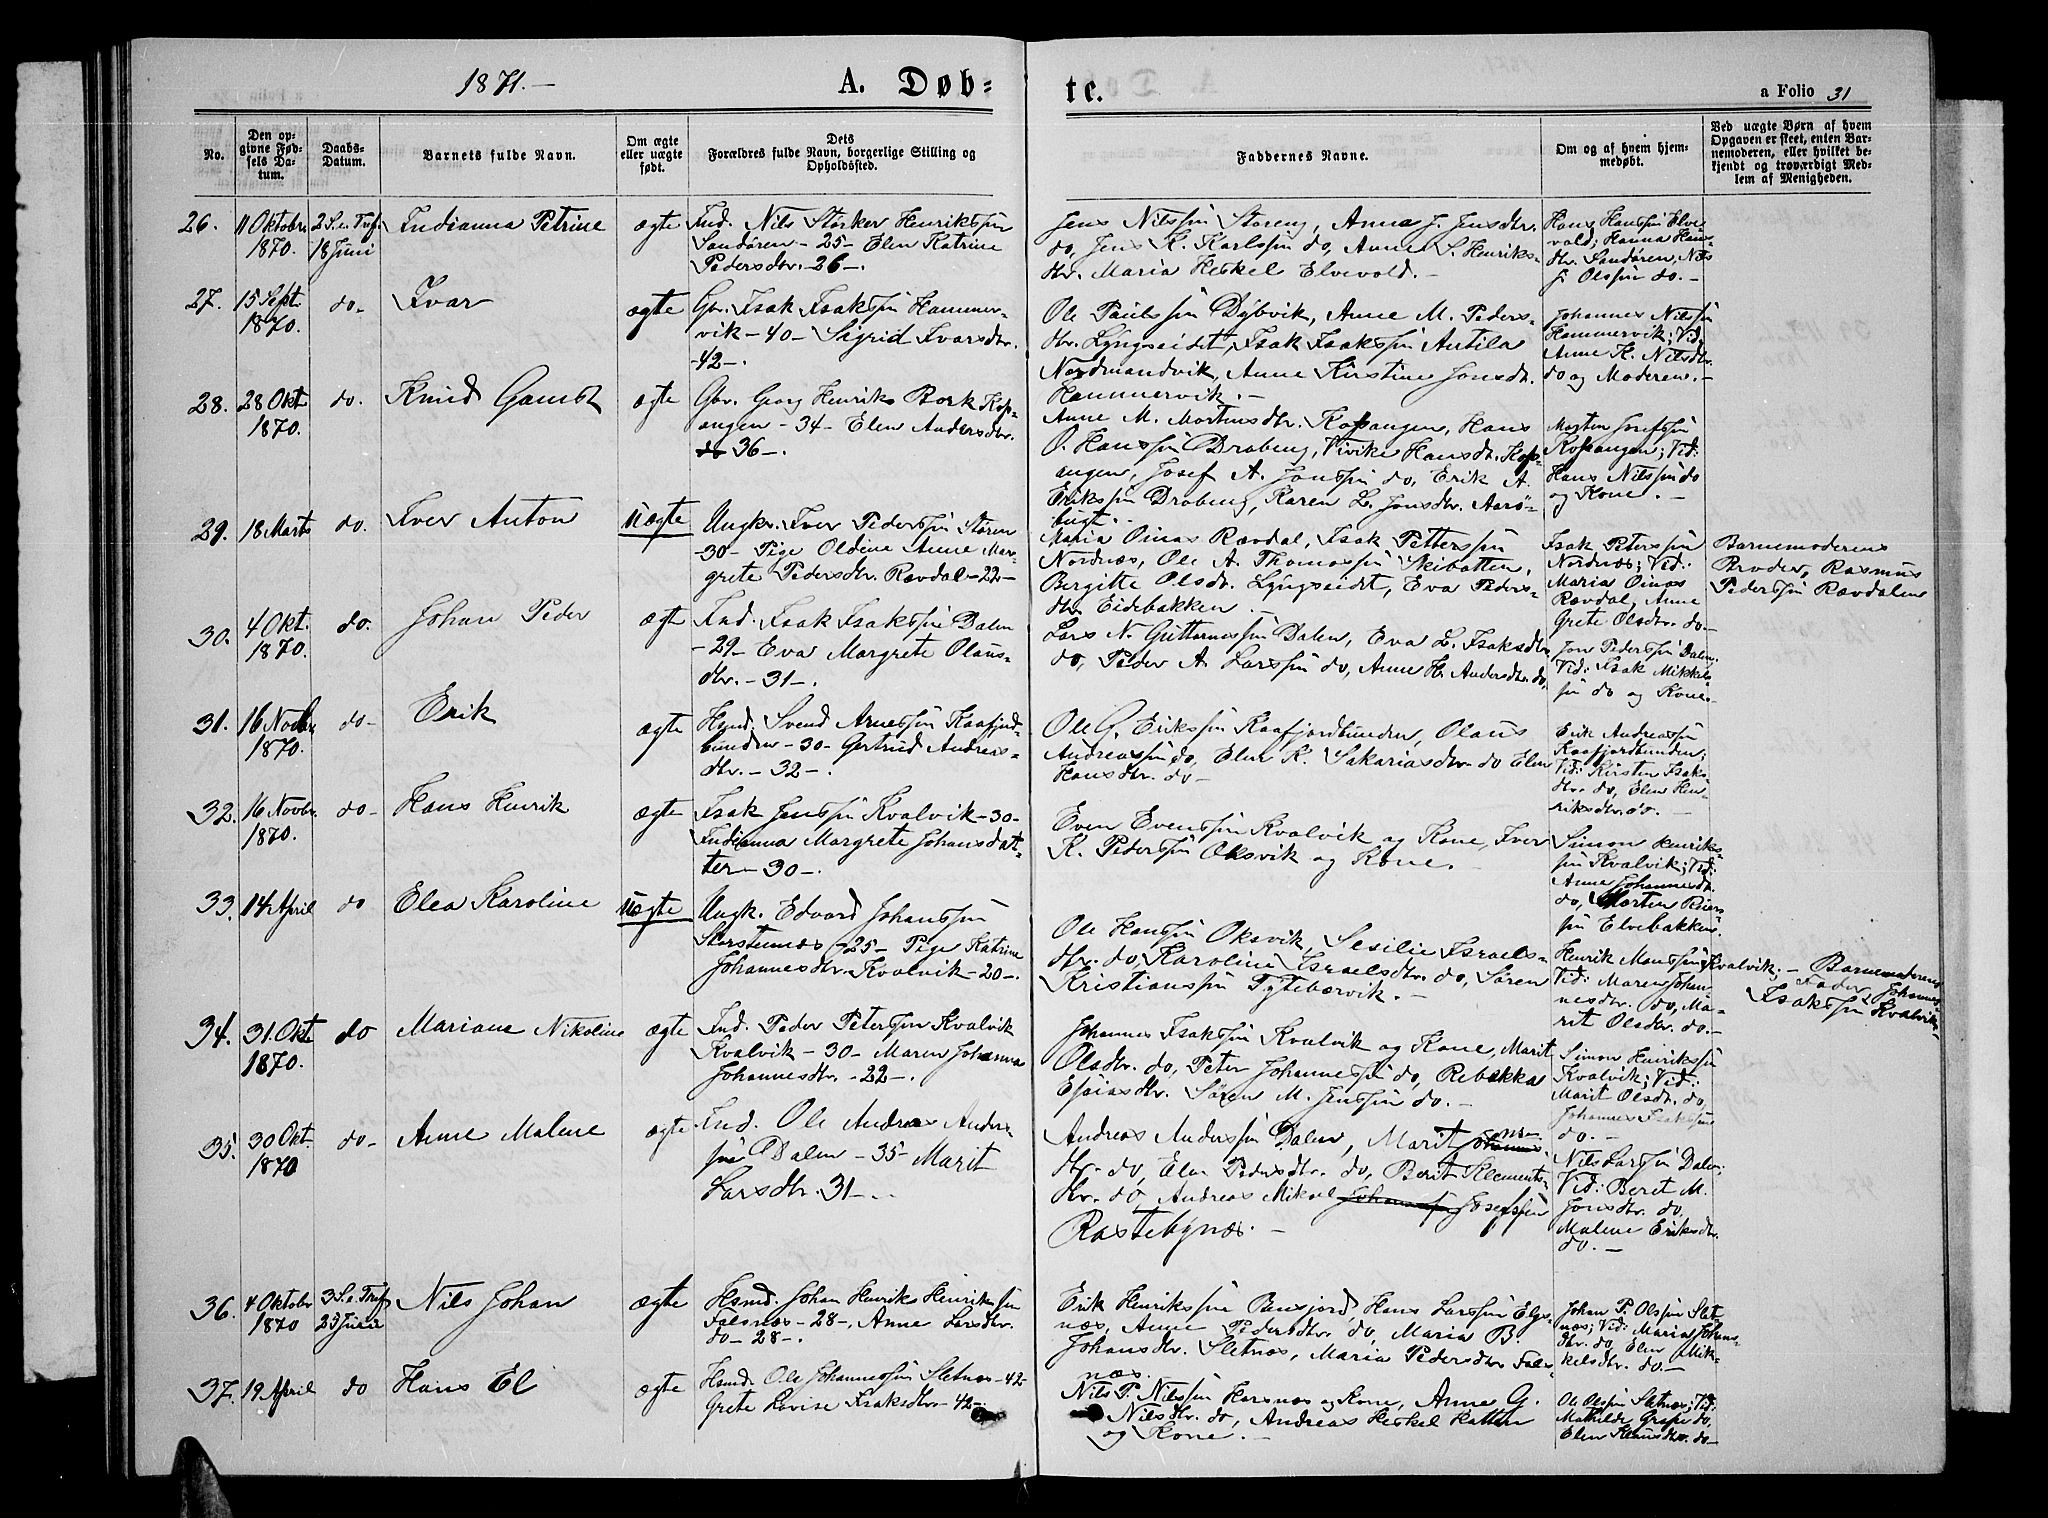 1871.—
A. Døb-
te.
a Folio 31
No.
Den op-
givne Fød-
sels Da-
tum.
Daabs-
Datum.
Barnets fulde Navn.
Om ægte
eller uægte
født.
Dets
Forældres fulde Navn, borgerlige Stilling og
Opholdssted.
Faddernes Navne.
Om og af hvem hjem-
medøbt.
Ved uægte Børn af hvem
Opgaven er skeet, enten Bar-
nemoderen, eller hvilket be-
kjendt og troværdigt Med-
lem af Menigheden.
26.
11 Oktobr.
1870.
2 S. e. Tref.
18 Juni
Indianna Petrine
ægte
Ind. Nils Størker Henrikssøn
Sandøren - 25 - Elen Katrine
Pedersdtr. - 26 -.
Jens Nilssøn Storeng, Anne J. Jensdtr.
do, Jens K. Karlssøn do, Anne S. Henriks-
dtr. Maria Heskel Elvevold. -
Hans Hanssøn Elve-
vold; Hanna Hans-
dtr. Sandøren, Nils
J. Olssøn do. -
27.
15 Sept.
1870.
do-
Ivar
ægte
Gbr. Isak Isakssøn Hammer-
vik - 40 - Sigrid Ivarsdtr.
- 42 -.
Ole Paulssøn Dybvik, Anne M. Peders-
dtr. Lyngseidet, Isak Isakssøn Antila
Nordmandvik, Anne Kirstine Jonsdt.
Hammervik. -
Johannes Nilssøn
Hammervik; Vid,
Anne K. Nilsdtr.
do og Moderen. -
28.
28 Okt
1870.
do.
Knud Gamst
ægte
Gbr. Georg Henriks Bork Kop-
angen - 34 - Elen Andersdtr.
do 36 -.
Anne M. Mortensdtr. Kopangen, Hans
O. Hanssøn Drabeng, Vivike Hansdtr. Kop-
angen, Josef A. Jonssøn do, Erik A.
Erikssøn Drabeng, Karen L. Jonsdtr. Aarø-
bugt. -
Morten Josefssøn
Kopangen; Vid:
Hans Nilssøn do
og Kone. -
29.
18 Marts
do.
Iver Anton
uægte
Ungkr. Iver Pederssøn Støren
- 30 - Pige Oldine Anne Mar-
grete Pedersdtr. Rævdal - 22 -
Maria Oinas Rævdal, Isak Petterssøn
Nordnæs, Ole A. Thomassøn Skibotten,
Bergitte Olsdtr. Lyngseidet, Eva Peders-
dtr Eidebakken. -
Isak Peterssøn
Nordnæs; Vid:
Maria Oinas
Rævdal, Anne
Grete Olsdtr. do -
Barnemoderens
Broder, Rasmus
Pederssøn Rævdalen
30.
4 Okt.
1870.
do.
Johan Peder
ægte
Ind. Isak Isakssøn Dalen
- 29 - Eva Margrete Olaus-
dtr. - 31 -.
Lars N. Guttormssøn Dalen, Eva L. Isaksdtr
do, Peder A. Larssøn do, Anne H. Andersdtr. do,
Jon Pederssøn Dalen;
Vid: Isak Mikkels-
søn do og Kone -
31.
16 Novbr.
1870.
do-
Erik
ægte
Hsmd. Svend Arnessøn Kaafjord-
bunden - 30 - Gertrud Andreas-
dtr. - 32 -.
Ole G. Erikssøn Kaafjordbunden, Olaus
Andreassøn do, Elen K. Sakariasdtr. do Elen
Hansdtr. do -
Erik Andreassøn
Kaafjordbunden;
Vid: Kirsten Isaks-
dtr. do, Elen Hen-
riksdtr. do. -
32.
16 Novbr.
1870.
do-
Hans Henrik
ægte
Isak Jenssøn Kvalvik - 30 -
Indianna Margrete Johansdat-
ter - 30 -.
Even Evenssøn Kvalvik og Kone, Iver
K. Pederssøn Oksvik og Kone. -
Simon Henriks-
søn Kvalvik; Vid:
Anne Johannesdt.
do, Morten
søn Elvebakken.
33.
14 April
do
Elea Karoline
uægte
Ungk. Edvard Johanssøn
Storstennæs - 25 - Pige Katrine
Johannesdtr. Kvalvik - 20 -.
Ole Hanssøn Oksvik, Sesilie Israels-
dtr. do, Karoline Israelsdtr. do, Søren
Kristianssøn Tyttebærvik. -
Henrik Monssøn Kvalvik; -
Vid: Maren Johan-
nesdtr. do, Ma-
rit Olsdtr. do. -
Barnemoderens
Fader, Johannes
Isakssøn Kvalvik -
34.
31 Okt
1870.
do
Mariane Nikoline
ægte
Ind. Peder Peterssøn Kvalvik
Kvalvik - 30 - Maren Johanna
Johannesdtr. - 22 -.
Johannes Isakssøn Kvalvik og Kone, Marit
Olsdtr. do, Peter Johannessøn do, Rebekka
Esaiasdtr. Søren M. Jenssøn do. -
Simon Henrikssøn
Kvalvik; Vid:
Marit Olsdtr. do,
Johannes Isakssøn
do. -
35.
30 Okt.
1870
do-
Anne Malene
ægte
Ind. Ole Andreas Anders-
søn Dalen - 35 - Marit
Larsdtr. 31 -.
Andreas Anderssøn Dalen, Marit
dtr. do, Elen Pedersdtr. do, Berit Klements-
dtr. do, Andreas Mikal Johanssøn Josefssøn
Rastebynæs. -
Nils Larssøn Dalen;
Vid: Berit M.
Jonsdtr. do,
Malene Eriksdtr.
do. -
36.
4 Oktobr
1870
3 S. e. Tref.
25 Juni
Nils Johan
ægte
Hsmd. Johan Henriks Henrikssøn
Falsnæs - 28 -, Anne Larsdtr.
do - 28 -.
Erik Henrikssøn Bensjord, Hans Larssøn Elge-
næs, Anne Pedersdtr. do, Maria B.
Johansdtr. Sletnæs, Maria Pedersdtr Fals-
næs. -
Johan P. Olssøn Slet-
næs; Vid: Maria Johans-
dtr. do, Elen Mik-
kelsdtr. do. -
37.
19 April
do
Hans El
ægte
Hsmd. Ole Johannessøn Sletnæs - 42 -
Grete Lovise Isaksdtr. - 42 -.
Nils P. Nilssøn Horsnæs og Kone, Anne G.
Nilsdtr. do, Andreas Heskel Ratten
og Kone. -
Ole Olssøn Sletnæs; Vid:
Mathilde Grape do,
Elen Klausdtr. do -